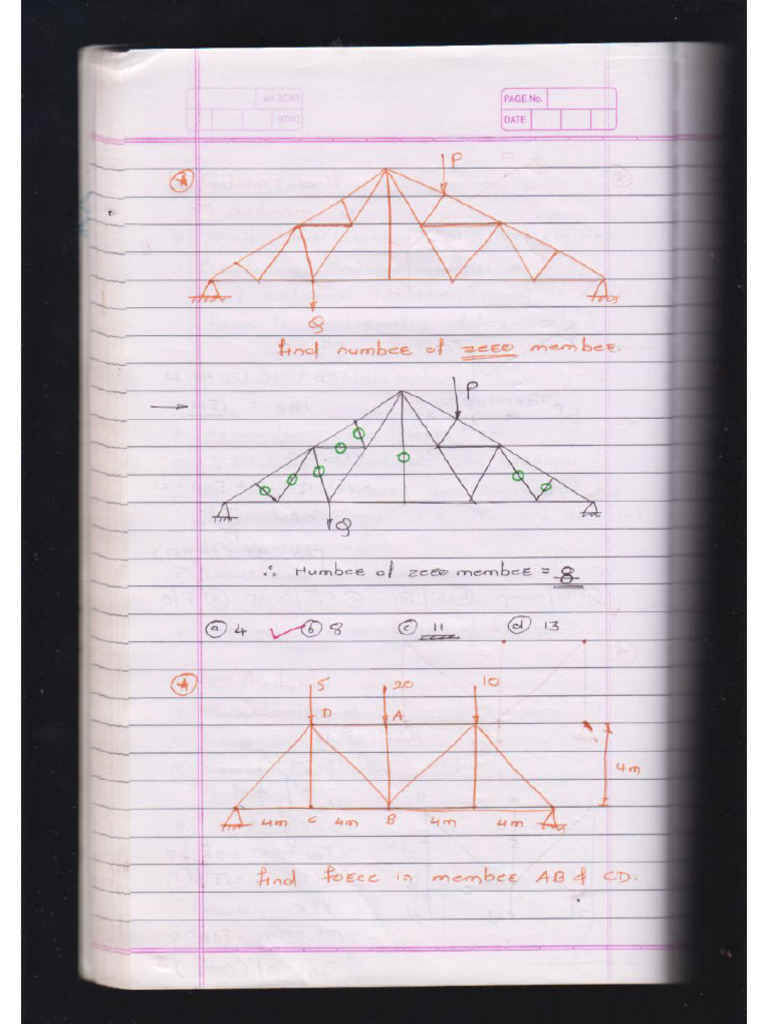 PAGE No.
DATE
P
Q
find number of zero member.
P
Q
∴ Number of zero member = 8
ⓐ 4 ✓ ⓑ 8 ⓒ 11 ⓓ 13
5 20 10
D A
4m
4m C 4m B 4m 4m
find force in member AB & CD.